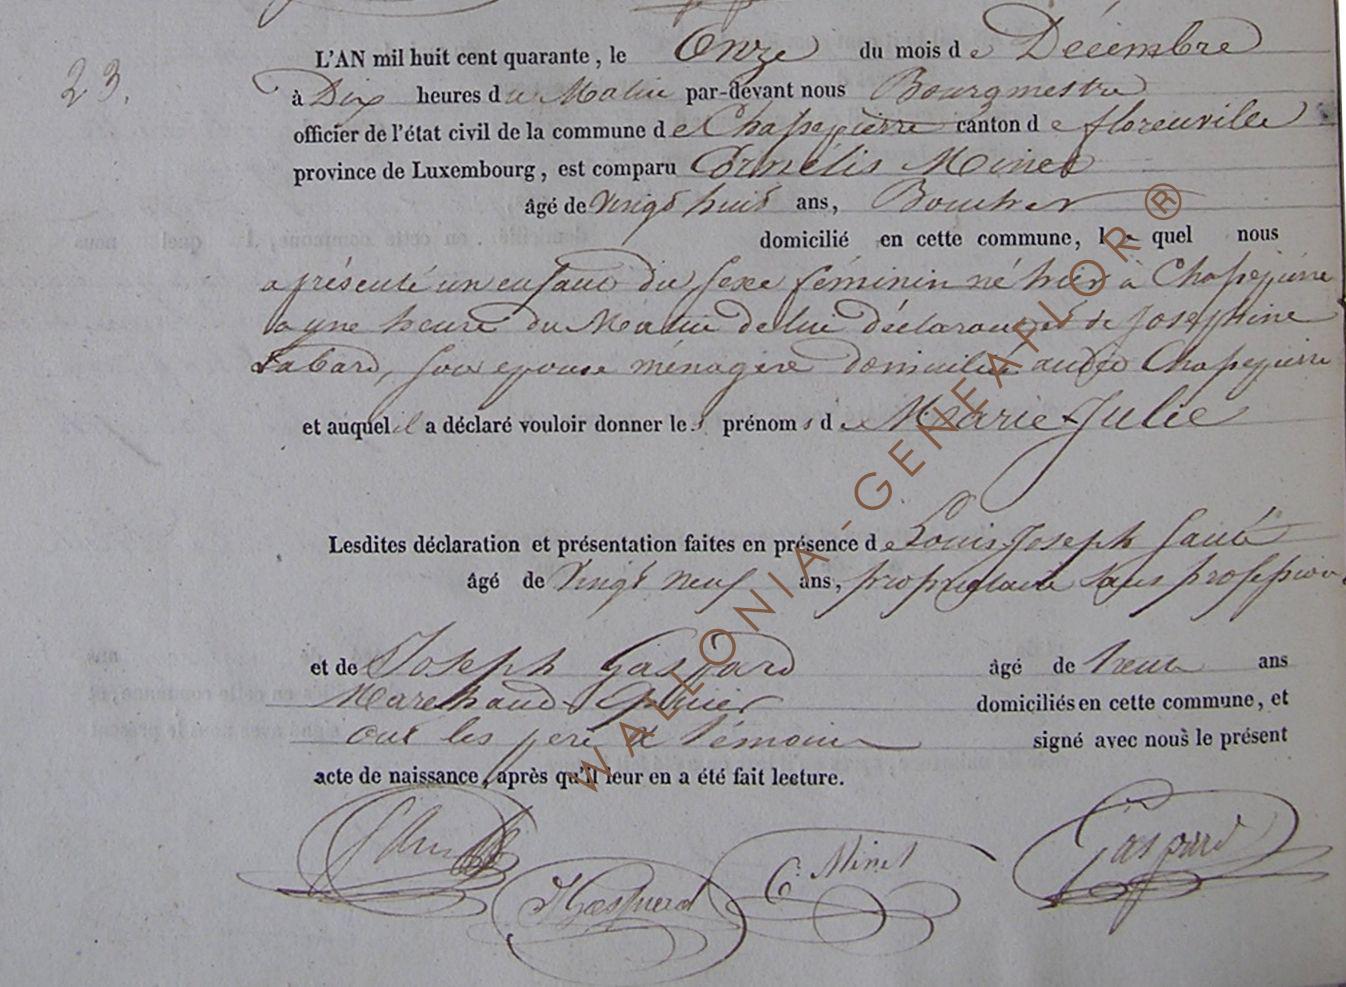 23.
L'AN mil huit cent quarante, le Onze du mois de Décembre
à Dix heures du Matin par-devant nous Bourgmestre
officier de l'état civil de la commune de Chassepierre canton de florenville
province de Luxembourg, est comparu Cornélis Minet
âgé de vingt huit ans, Boucher
domicilié en cette commune, lequel nous
a présenté un enfant du sexe féminin né hier à Chassepierre
a une heure du Matin de lui déclarant et de Josephine
Labard, son epouse ménagère domiciliée audit Chassepierre
et auquel il a déclaré vouloir donner les prénoms de Marie Julie
Lesdites déclaration et présentation faites en présence de Louis Joseph
âgé de vingt neuf ans, proprietaire sans profession
et de Joseph Gaspard âgé de trente ans
Marechand Epicier domiciliés en cette commune, et
ont les pere et témoins signé avec nous le présent
acte de naissance, après qu'il leur en a été fait lecture.
J Gaspard C. Minet Gaspard
WALLONIA-GENEAFLOR ®